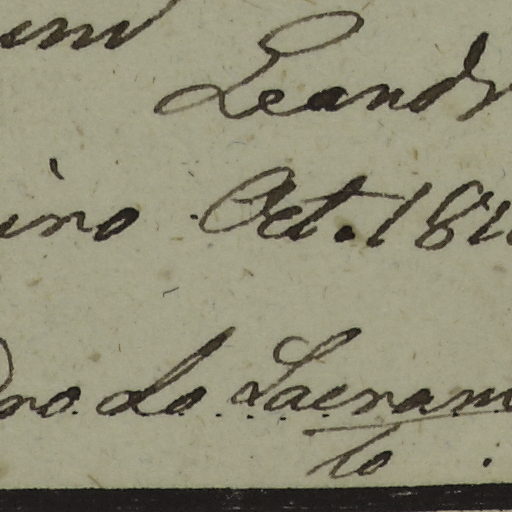 Leandr
ino Oct. 181
dro do Sacram
to.